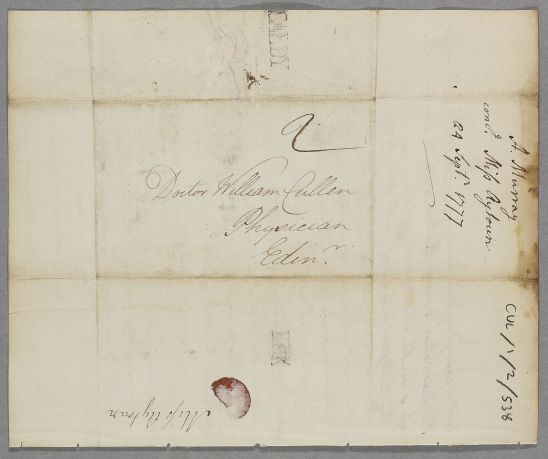 2
Doctor William Cullen
Physician
Edinr.
A. Murray
conc. Miss Aytoun
24 Septr. 1777
CUL/1/2/538
Miss Aytoun